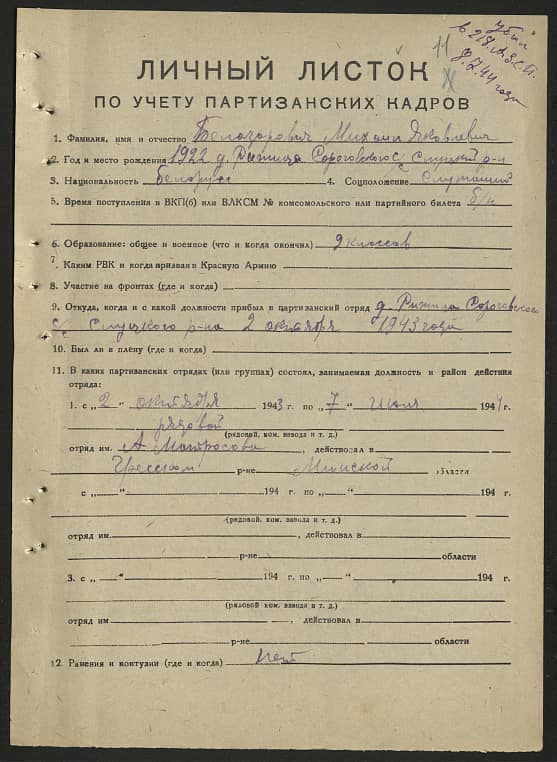 убит
11
ЛИЧНЫЙ ЛИСТОК
ПО УЧЕТУ ПАРТИЗАНСКИХ КАДРОВ
1. Фамилия, имя и отчество Белозорович Михаил Яковлевич
2. Год и место рождения 1922 д. Рыжица Сороговского с/с Слуцкий р-н
3. Национальность белорус 4. Соцположение Служащий
5. Время поступления в ВКП(б) или ВЛКСМ № комсомольского или партийного билета б/п
6. Образование: общее и военное (что и когда окончил) 9 классов
7. Каким РВК и когда призван в Красную Армию
8. Участие на фронтах (где и когда)
9. Откуда, когда и с какой должности прибыл в партизанский отряд д. Рыжица Сороговского
с/с Слуцкого р-на 2 октября 1943 года
10. Был ли в плену (где и когда)
11. В каких партизанских отрядах (или группах) состоял, занимаемая должность и район действия
отряда:
1. с „2“ октября 1943 г. по „7“ июля 1944 г.
рядовой
(рядовой, ком. взвода и т. д.)
отряд им. А Матросова, действовал в
Гресском р-не Минской области
с „ “ 194 г. по „ “ 194 г.
(рядовой, ком. взвода и т. д.)
отряд им. , действовал в
р-не области
3. с „ “ 194 г. по „ “ 194 г.
(рядовой, ком. взвода и т. д.)
отряд им. , действовал в
р-не области
12. Ранения и контузии (где и когда) нет